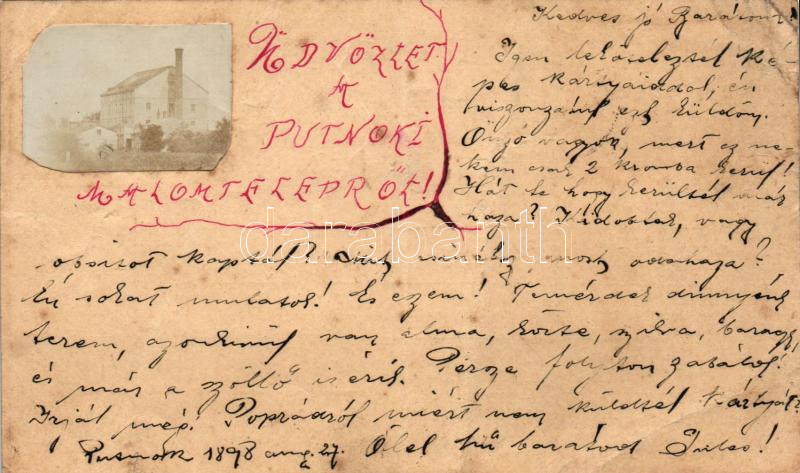 ÜDVÖZLET
A
PUTNOKI
MALOMTELEPRŐL!
Kedves jó Barátom!
Igen leköteleztél ké-
pes kártyáiddal, én
viszonzásul ezt küldöm.
Önző vagyok, mert ez ne-
kem csak 2 kromba kerül!
Hát te hogy kerültél már
haza? Kidobtak, vagy
obsitot kaptál? most odahaza?
Én sokat mulatok! És eszem! Temérdek dinnyénk
terem, azonkívül van alma, körte, szilva, barack,
és már a szöllő is érik. Persze folyton zabálok!
Irjál még! Poprádról miért nem küldtél kártyát?
Putnok 1898 aug. 27. Ölel hű barátod Gulcs!
darabanth